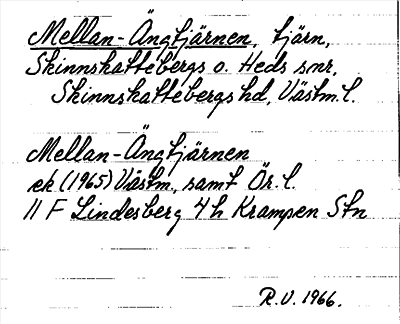 Mellan-Ängtjärnen, tjärn,
Skinnskattebergs o. Heds snr,
Skinnskattebergs hd, Västm. l.
Mellan-Ängtjärnen
ek (1965) Västm., samt Ör. l.
11 F Lindesberg 4 h Krampen Stn
R.V. 1966.